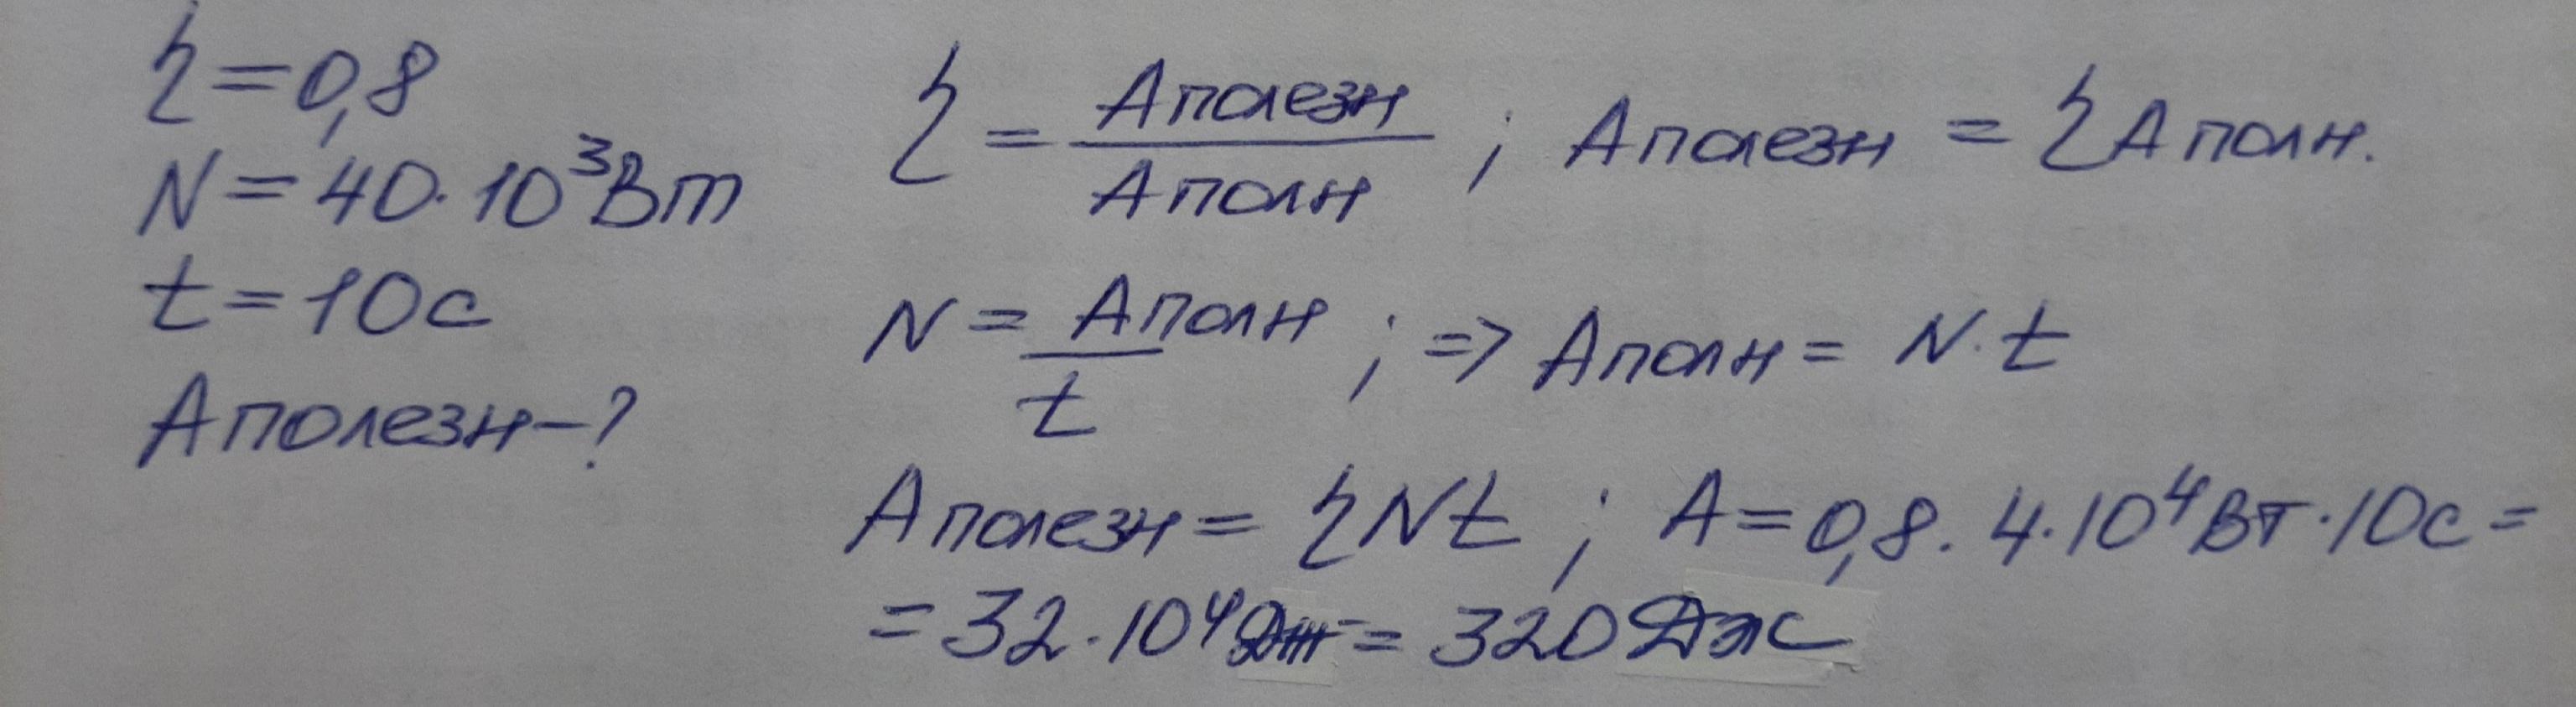 η = 0,8
N = 40·10³ Вт
t = 10 с
Aполезн – ?
η = Aполезн / Aполн ; Aполезн = ηAполн.
N = Aполн / t ; => Aполн = N·t
Aполезн = ηNt ; A = 0,8·4·10⁴ Вт·10с =
= 32·10⁴ Дж = 320 Дж